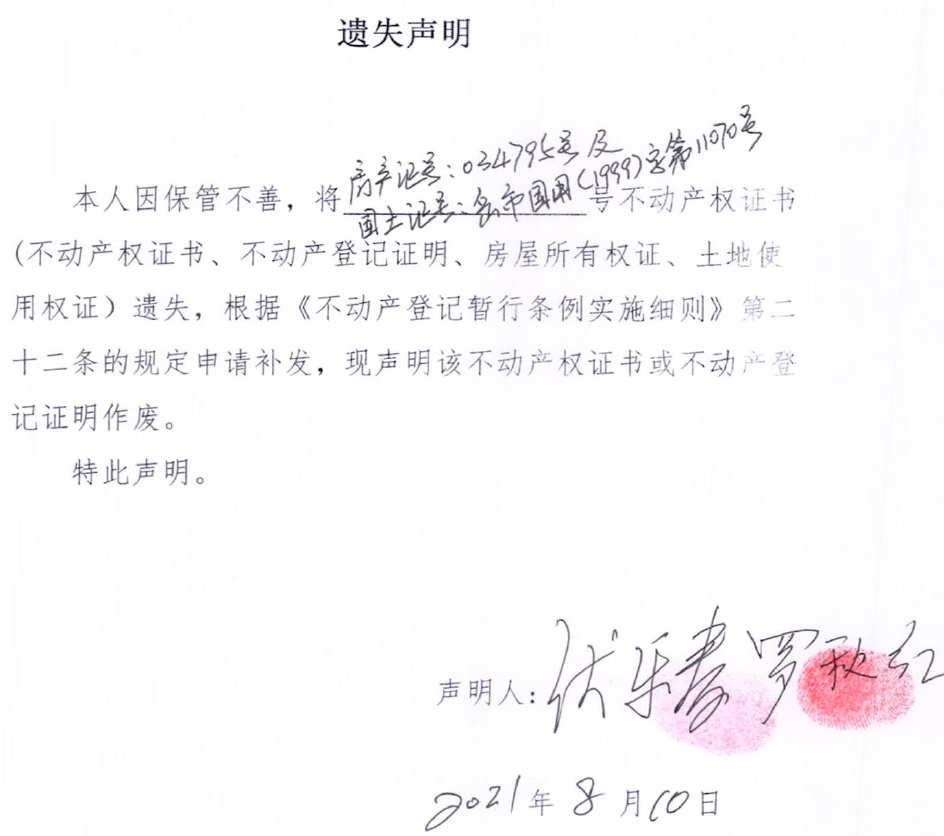 遗失声明
房产证号:034795号及
本人因保管不善，将国土证号:岳市国用(1999)字第11070号号不动产权证书
(不动产权证书、不动产登记证明、房屋所有权证、土地使
用权证）遗失，根据《不动产登记暂行条例实施细则》第二
十二条的规定申请补发，现声明该不动产权证书或不动产登
记证明作废。
特此声明。
声明人:伏乐春 罗秋红
2021年8月10日